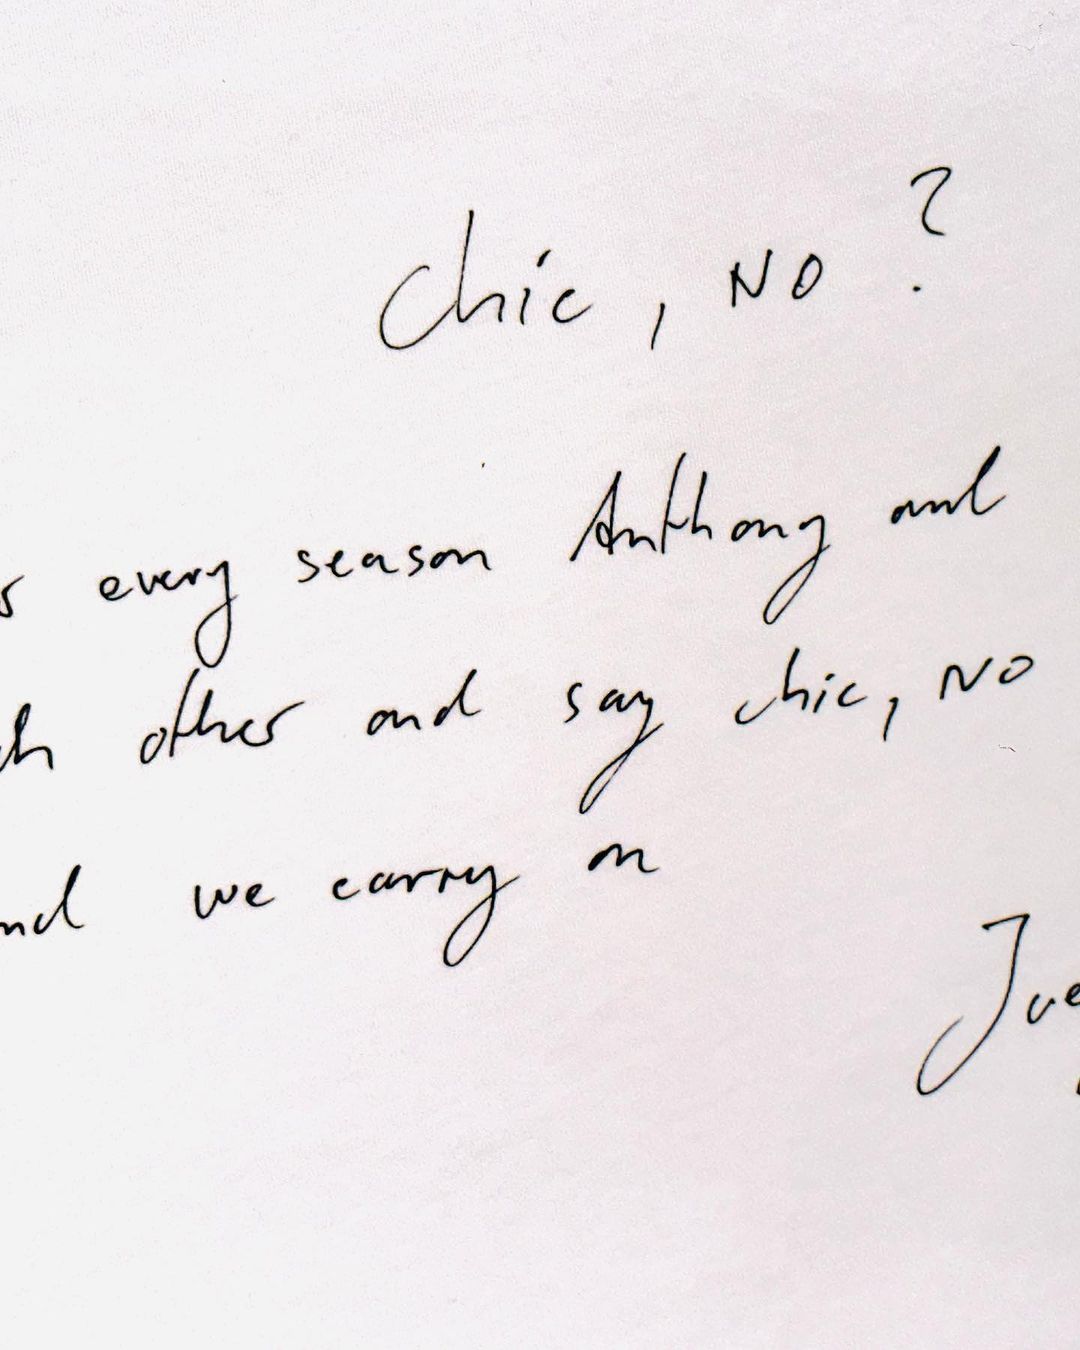 chic, NO ?
every season Anthony and
other and say chic, NO
we carry on